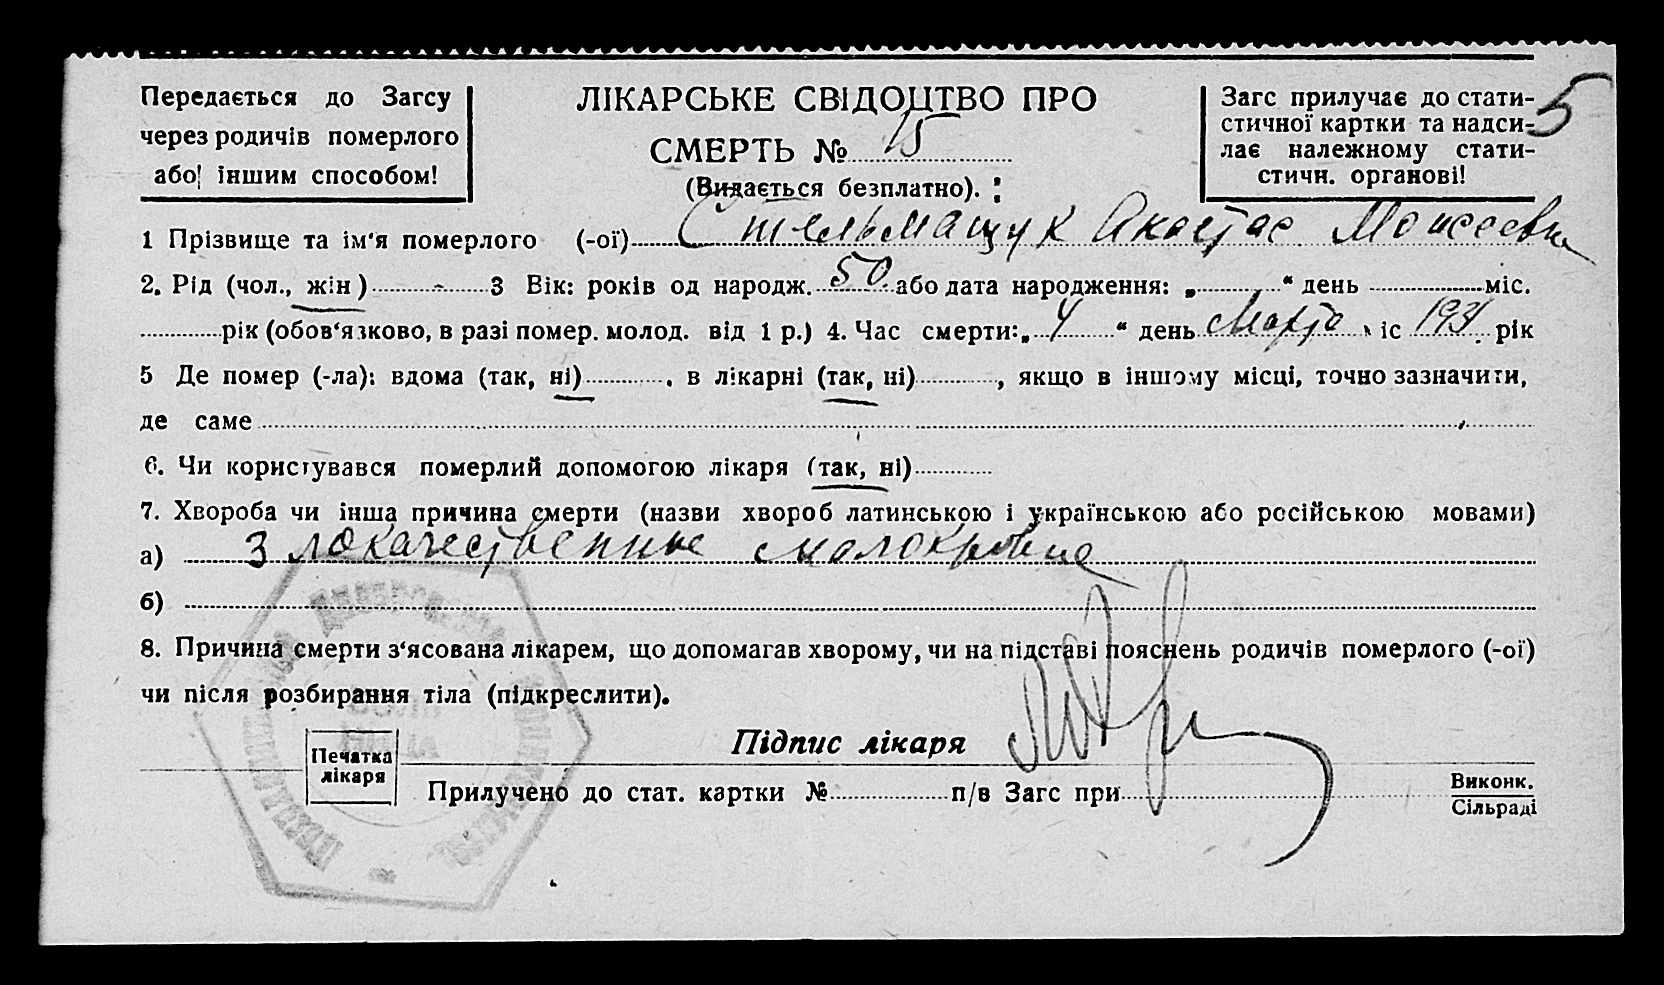 Передається до Загсу
через родичів померлого
або іншим способом!
ЛІКАРСЬКЕ СВІДОЦТВО ПРО
СМЕРТЬ № 15
(Видається безплатно).
Загс прилучає до стати-
стичної картки та надси-
лає належному стати-
стичн. органові!
5
1 Прізвище та ім'я померлого (-ої) Стельмащук Анастас Моисеевна
2. Рід (чол., жін) 3 Вік: років од народж. 50. або дата народження: „ “ день міс.
рік (обов'язково, в разі помер. молод. від 1 р.) 4. Час смерти: „ 4 “ день Марта міс 1931 рік
5 Де помер (-ла): вдома (так, ні) , в лікарні (так, ні) , якщо в іншому місці, точно зазначити,
де саме
6. Чи користувався померлий допомогою лікаря (так, ні)
7. Хвороба чи інша причина смерти (назви хвороб латинською і українською або російською мовами)
а) Злокачественные малокровие
б)
8. Причина смерти з'ясована лікарем, що допомагав хворому, чи на підставі пояснень родичів померлого (-ої)
чи після розбирання тіла (підкреслити).
Підпис лікаря
Печатка
лікаря
Прилучено до стат. картки № п/в Загс при
Виконк.
Сільраді